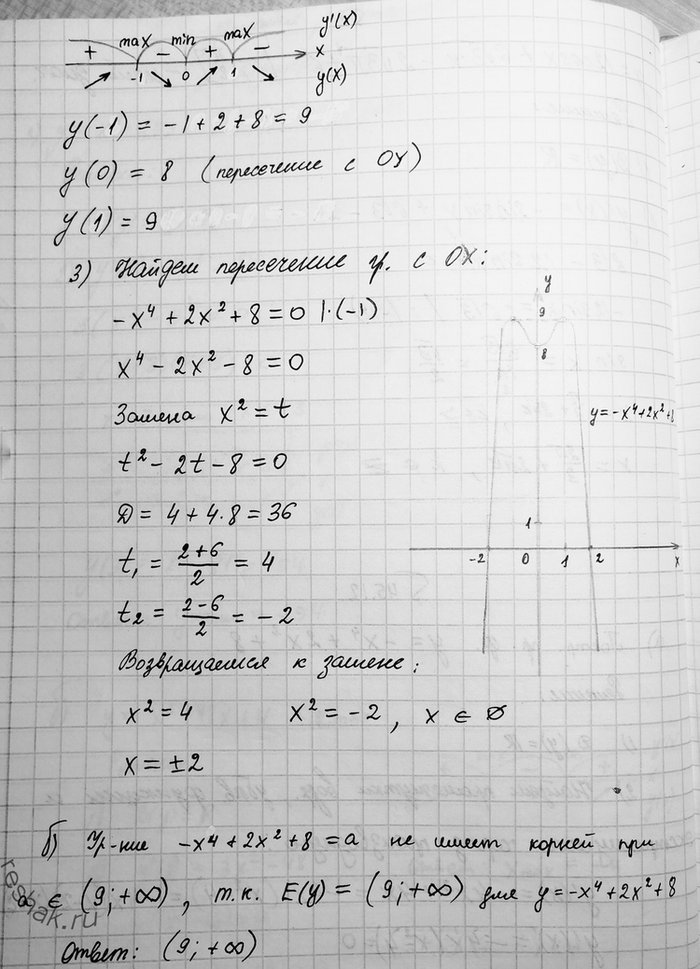 max min max y'(x)
+ − + − x
-1 0 1 y(x)
y(-1) = -1 + 2 + 8 = 9
y(0) = 8 (пересечение с OY)
y(1) = 9
3) Найдем пересечение гр. с OX:
-x⁴ + 2x² + 8 = 0 |·(-1)
x⁴ - 2x² - 8 = 0
Замена x² = t
t² - 2t - 8 = 0
D = 4 + 4·8 = 36
t₁ = (2+6)/2 = 4
t₂ = (2-6)/2 = -2
Возвращаемся к замене:
x² = 4 x² = -2, x ∈ ∅
x = ±2
y
9
8
y = -x⁴ + 2x² + 8
1
-2 0 1 2 x
б) Ур-ние -x⁴ + 2x² + 8 = a не имеет корней при
a ∈ (9; +∞), т.к. E(y) = (9; +∞) для y = -x⁴ + 2x² + 8
Ответ: (9; +∞)
reshak.ru